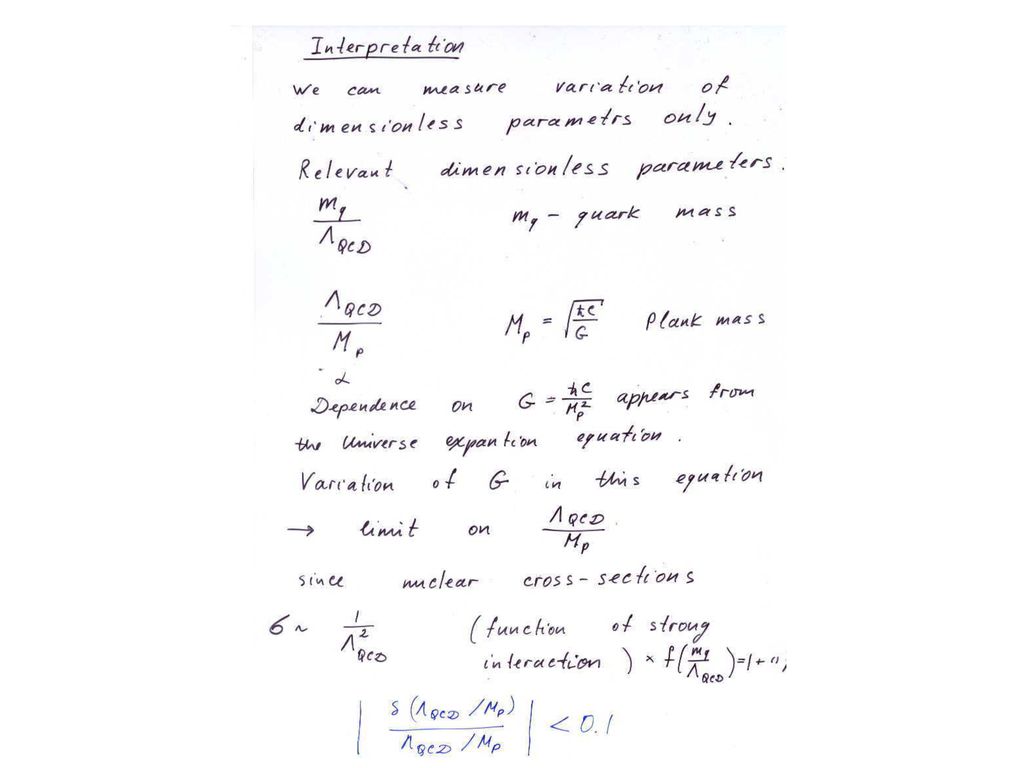 Interpretation
We can measure variation of
dimensionless parametrs only.
Relevant dimensionless parameters.
m_q / Λ_QCD   m_q – quark mass
Λ_QCD / M_p   M_p = √(ħc/G)   Plank mass
α
Dependence on G = ħc/M_p² appears from
the Universe expantion equation.
Variation of G in this equation
→ limit on Λ_QCD / M_p
since nuclear cross-sections
σ ~ 1/Λ²_QCD (function of strong
interaction) × f(m_q/Λ_QCD) = 1 + ..;
| δ(Λ_QCD/M_p) / (Λ_QCD/M_p) | < 0.1